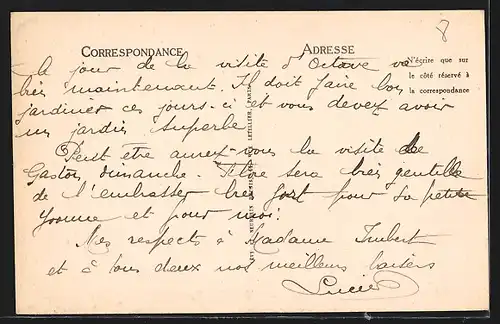 8
CORRESPONDANCE
ADRESSE
N'écrire que sur
le côté réservé à
la correspondance
Le jour de la visite d'Octave va
très maintenant. Il doit faire bon
jardiner ces jours-ci et vous devez avoir
un jardin superbe
Peut être aurez-vous la visite de
Gaston dimanche. Titine sera très gentille
de l'embrasser très fort pour sa petite
Yvonne et pour moi.
Mes respects à Madame Imbert
et à tous deux nos meilleurs baisers
Lucie